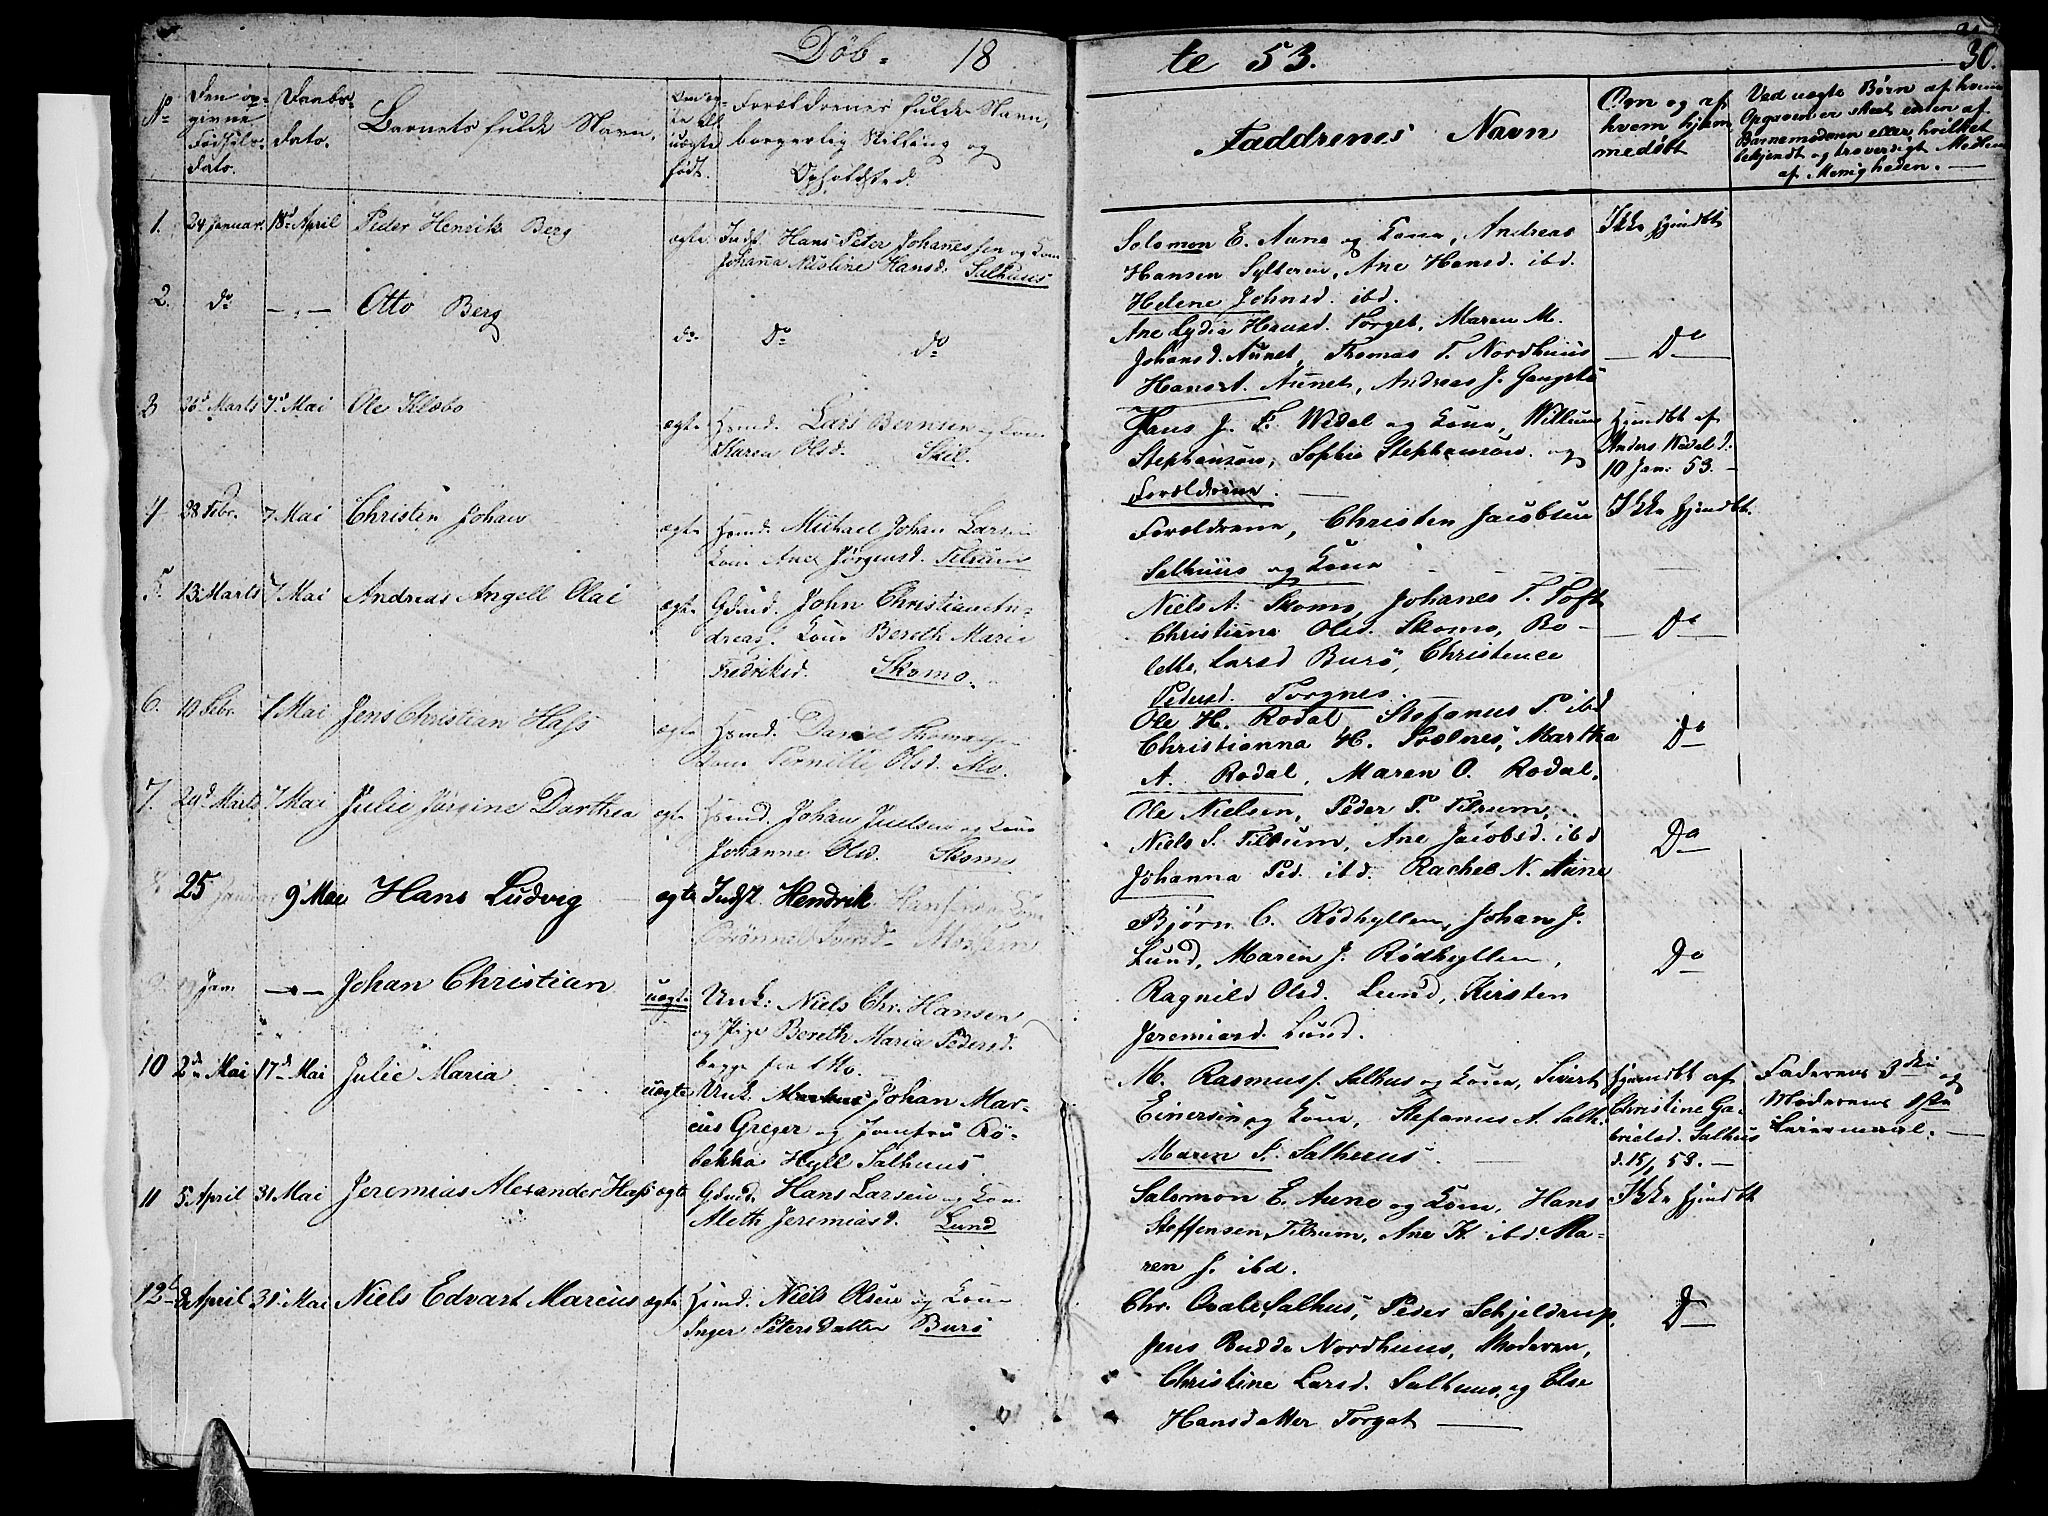 Döb. 18 te 53. 30.
No
Den op-
givne
Fødsels-
dato.
Daabs-
dato.
Barnets fulde Navn.
Om æg-
te ell.
uægte
født.
Forældrenes fulde Navn,
borgerlig Stilling og
Opholdsted.
Faddrenes Navn
Om og af
hvem hjem
medøbt
Ved uægte Børn af hvem
Opgaven er skeet enten af
Barnemoderen eller hvilket
bekjendt og troværdigt Medlem
af Menigheden.
1. 24 Januar. 18d April Peder Henrik Berg ægte Indst. Hans Peter Johanessen og Kone
Johanna Nicoline Hansd. Salhuus
Solomon E. Aune og Kone, Andreas
Hansen Sylteren, Ane Hansd. ibd.
Helene Johnsd. ibd.
Ikke hjemdbt
2. Do — " — Otto Berg do. Do Do
Ane Lydia Hansd. Torget, Maren M.
Johansd. Aunet, Thomas T. Nordhuus
Hans A. Aunet, Andreas J.
— Do —
3 7d Mai Ole Klæbo ægte Huusmd. Lars Berntsen og Kone
Karen Olsd. Skil.
Jens J. F. Wedel og Kone, Willum
Stephansøn, Sophie Stephansøn. og
Forældrene. —
Hjemdbt af
Anders Wedel d.
10 Jan: 53. —
4 28 Febr. 7 Mai Christen Johan ægte Huusmd. Michael Johan Larsen
Kone Ane Jørgensd. Tilrum
Forældrene, Christen Jacobsen
Salhuus og Kone
Ikke hjemdbt.
5. 13 Marts 7 Mai Andreas Angell Olai ægte Gdmd. John Christian An-
dreass. Kone Bereth Maria
Fredriksd. Skomo.
Niels A. Skomo, Johanes T. Toft
Christianna Olsd. Skomo, Bo-
lette Larsd Burø, Christence
Pedersd. Torgnes.
— Do —
6. 19 Febr. 7 Mai Jens Christian Hass ægte Huusmd. Daniel Thomass.
Kone Pernille Olsd. Mo.
Ole H. Rodal, Stefanus P. ibd
Christianna H. Solnes, Martha
A. Rodal, Maren O. Rodal.
Do
7. 29d Marts 7 Mai Julie Jørgine Dorthea ægte Huusmd. Johan Juelsen og Kone
Johanne Olsd. Skomo
Ole Nielsen, Peder P. Tilrum,
Niels S. Tilrum, Ane Jacobsd. ibd
Johanna Ped. ibd. Rachel N. Aune
Do
8. 25 Januar 9 Mai Hans Ludvig ægte Indst. Hendrik Hansen og Kone
Bjørn C. Rødhyllen, Johan J.
Lund, Maren J. Rødhyllen,
Ragnild Olsd. Lund, Kirsten
Jeremiasd. Lund.
Do
9. Jan. — " — Johan Christian uægte Unk: Niels Chr. Hansen
og Pige Bereth Maria Pedersd.
begge fra Mo.
10 2d Mai 17d Mai Julie Maria uægte Unk. Johan Mar-
cus Greger og Jomfru Re-
bekka Hyll Salhuus.
M. Rasmuss. Salhus og Kone, Sivert
Einersen og Kone, Stefanus A. Salh.
Maren S. Salhuus. —
Hjemdbt af
Christine Ga-
brielsd. Salhuus
d. 15/5 53. —
Faderens 3die og
Moderens 1ste
Leiermaal. —
11 5 April 31 Mai Jeremias Alexander Hass ægte Gdmd. Hans Larsen og Kone
Meth Jeremiasd. Lund
Salomon E. Aune og Kone, Hans
Steffensen Tilrum, Ane K. ibd. Ma-
ren J. ibd.
Ikke hjemdbt
12 April 31 Mai Niels Edvart Marcus ægte Huusmd. Niels Olsen og Kone
Inger Petersdatter Burø
Chr. Qvale Salhus, Peder Schjeldrup,
Jens Budde Nordhuus, Moderen,
Christine Larsd. Salhuus, og Else
Hansdatter Torget —
Do